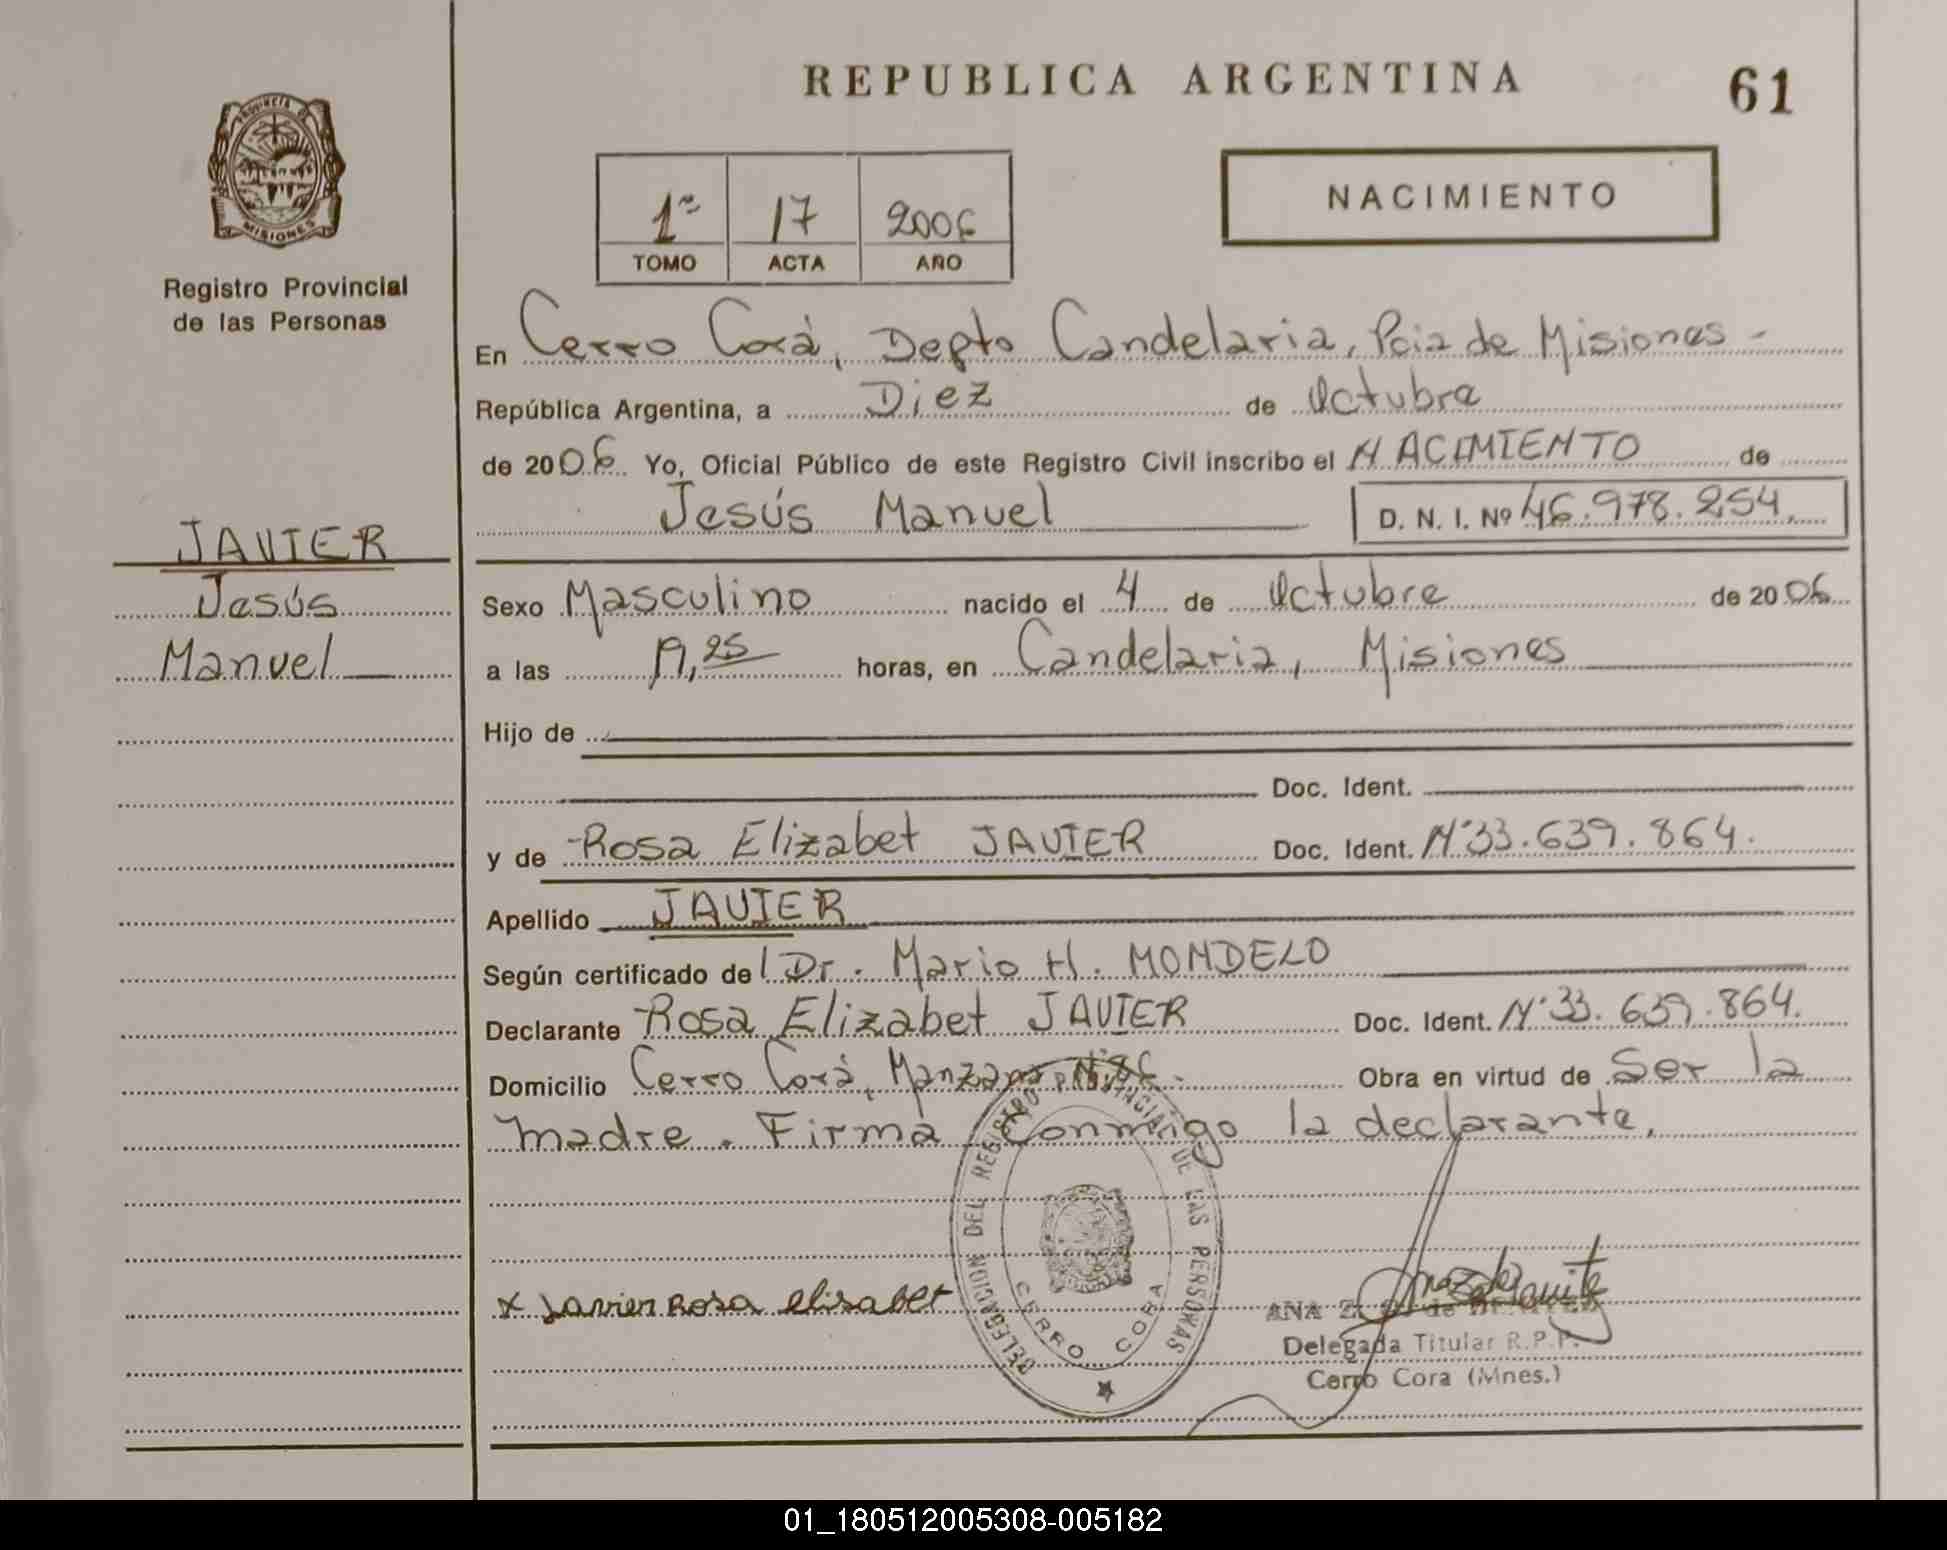 REPUBLICA ARGENTINA
61
PROVINCIA DE
MISIONES
Registro Provincial
de las Personas
1º 17 2006
TOMO ACTA AÑO
NACIMIENTO
En Cerro Corá, Depto Candelaria, Pcia de Misiones -
República Argentina, a Diez de Octubre
de 2006 Yo, Oficial Público de este Registro Civil inscribo el NACIMIENTO de
Jesús Manuel D. N. I. Nº 46.978.254.
JAVIER
Jesús
Manuel
Sexo Masculino nacido el 4 de Octubre de 2006
a las 19,25 horas, en Candelaria, Misiones
Hijo de
Doc. Ident.
y de Rosa Elizabet JAVIER Doc. Ident. Nº 33.639.864.
Apellido JAVIER
Según certificado del Dr. Mario H. MONDELO
Declarante Rosa Elizabet JAVIER Doc. Ident. Nº 33.639.864.
Domicilio Cerro Corá, Manzana Obra en virtud de ser la
madre. Firma Conmigo la declarante.
DELEGACION DEL REGISTRO PROVINCIAL DE LAS PERSONAS
CERRO CORA
x Javier Rosa elisabet
ANA Z. de
Delegada Titular R.P.P.
Cerro Cora (Mnes.)
01_180512005308-005182